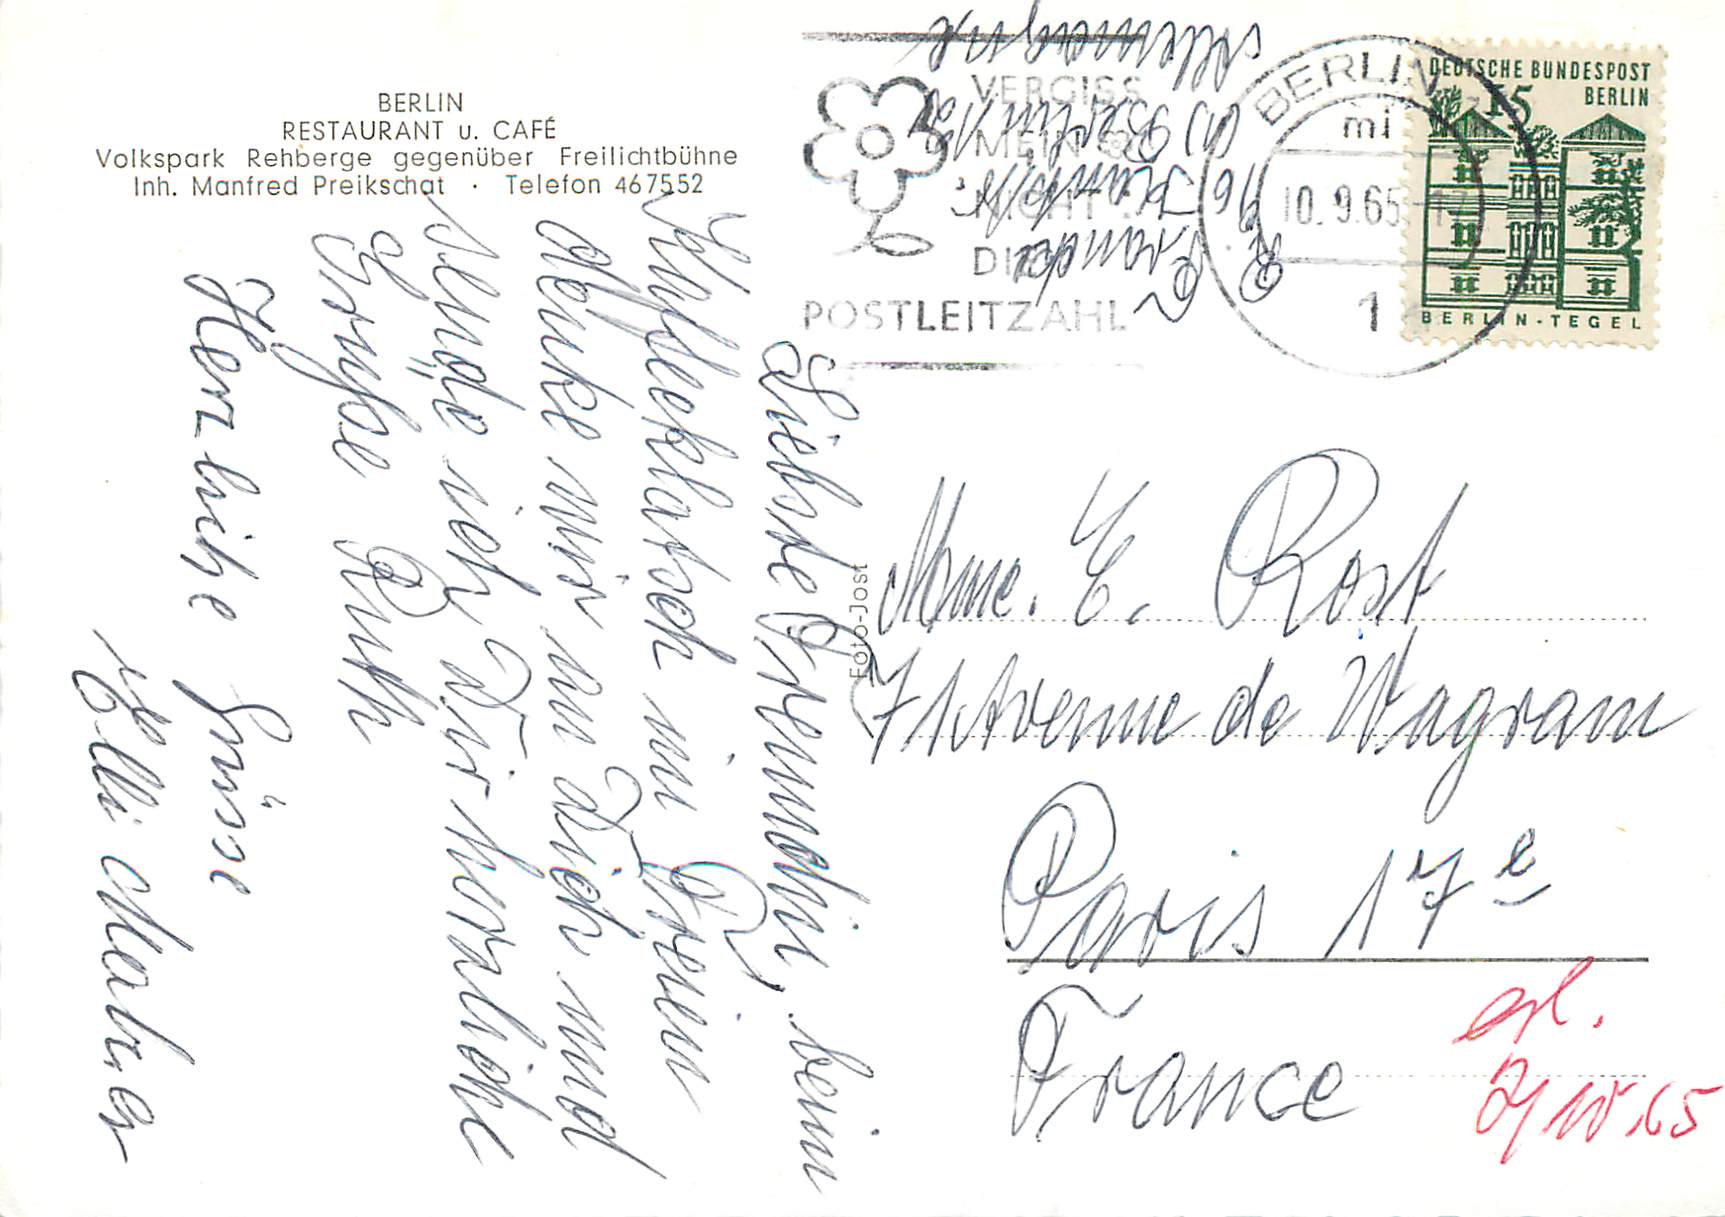 BERLIN
RESTAURANT u. CAFÉ
Volkspark Rehberge gegenüber Freilichtbühne
Inh. Manfred Preikschat · Telefon 467552
Liebste Freundin, beim
Kaffeeklatsch im Freien
denke wir an Dich und
sende ich Dir herzliche
Grüße Ruth
Herzliche Grüsse
Elli
Foto-Jost
VERGISS
MEIN
NICHT
DIE
POSTLEITZAHL
BERLIN
mi
10.9.65-17
1
DEUTSCHE BUNDESPOST
BERLIN
15
BERLIN-TEGEL
(1) Berlin
Allemagne
Mme. E. Rost
71 Avenue de Wagram
Paris 17e
France
erl.
65